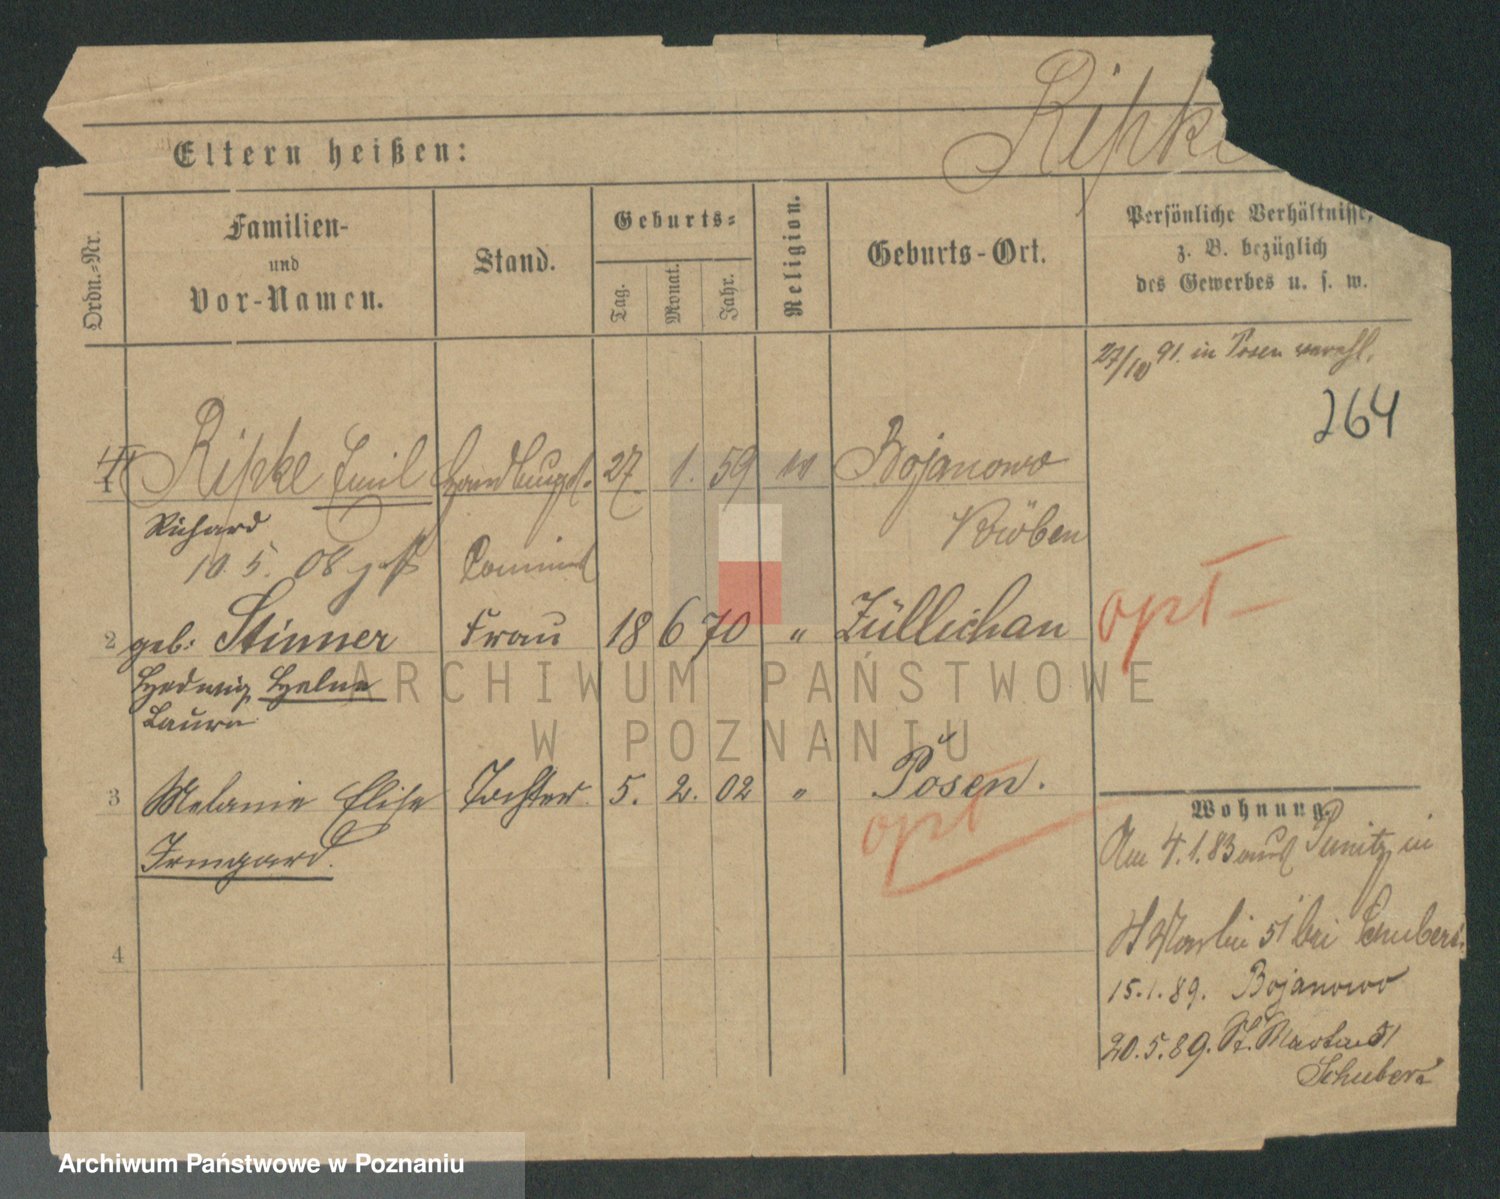 Ripke
Eltern heißen:
Ordn.-Nr.
Familien-
und
Vor-Namen.
Stand.
Geburts-
Tag.
Monat.
Jahr.
Religion.
Geburts-Ort.
Persönliche Verhältnisse,
z. B. bezüglich
des Gewerbes u. s. w.
27/10 91. in Posen verehl.
264
1 Ripke Emil 27. 1. 59 Bojanowo
Richard Kröben
10. 5. 08
2 geb: Stinner Frau 18 6 70 " Züllichau
opt
Hedwig Helene
Laura
3 Melanie Elise Tochter. 5. 2. 02 " Posen.
Irmgard.
opt
4
Wohnung.
Am 4.1.83 aus Punitz in
St Martin 51 bei Schubert
15.1.89. Bojanowo
20.5.89. St. Martin 51
Schubert
ARCHIWUM PAŃSTWOWE
W POZNANIU
Archiwum Państwowe w Poznaniu